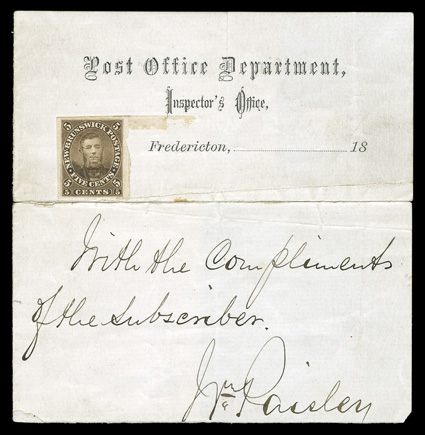 Post Office Department,
Inspector's Office,
Fredericton, 18
5 NEW BRUNSWICK POSTAGE 5
FIVE CENTS
5 CENTS 5
With the Compliments
of the subscriber.
Wm Paisley